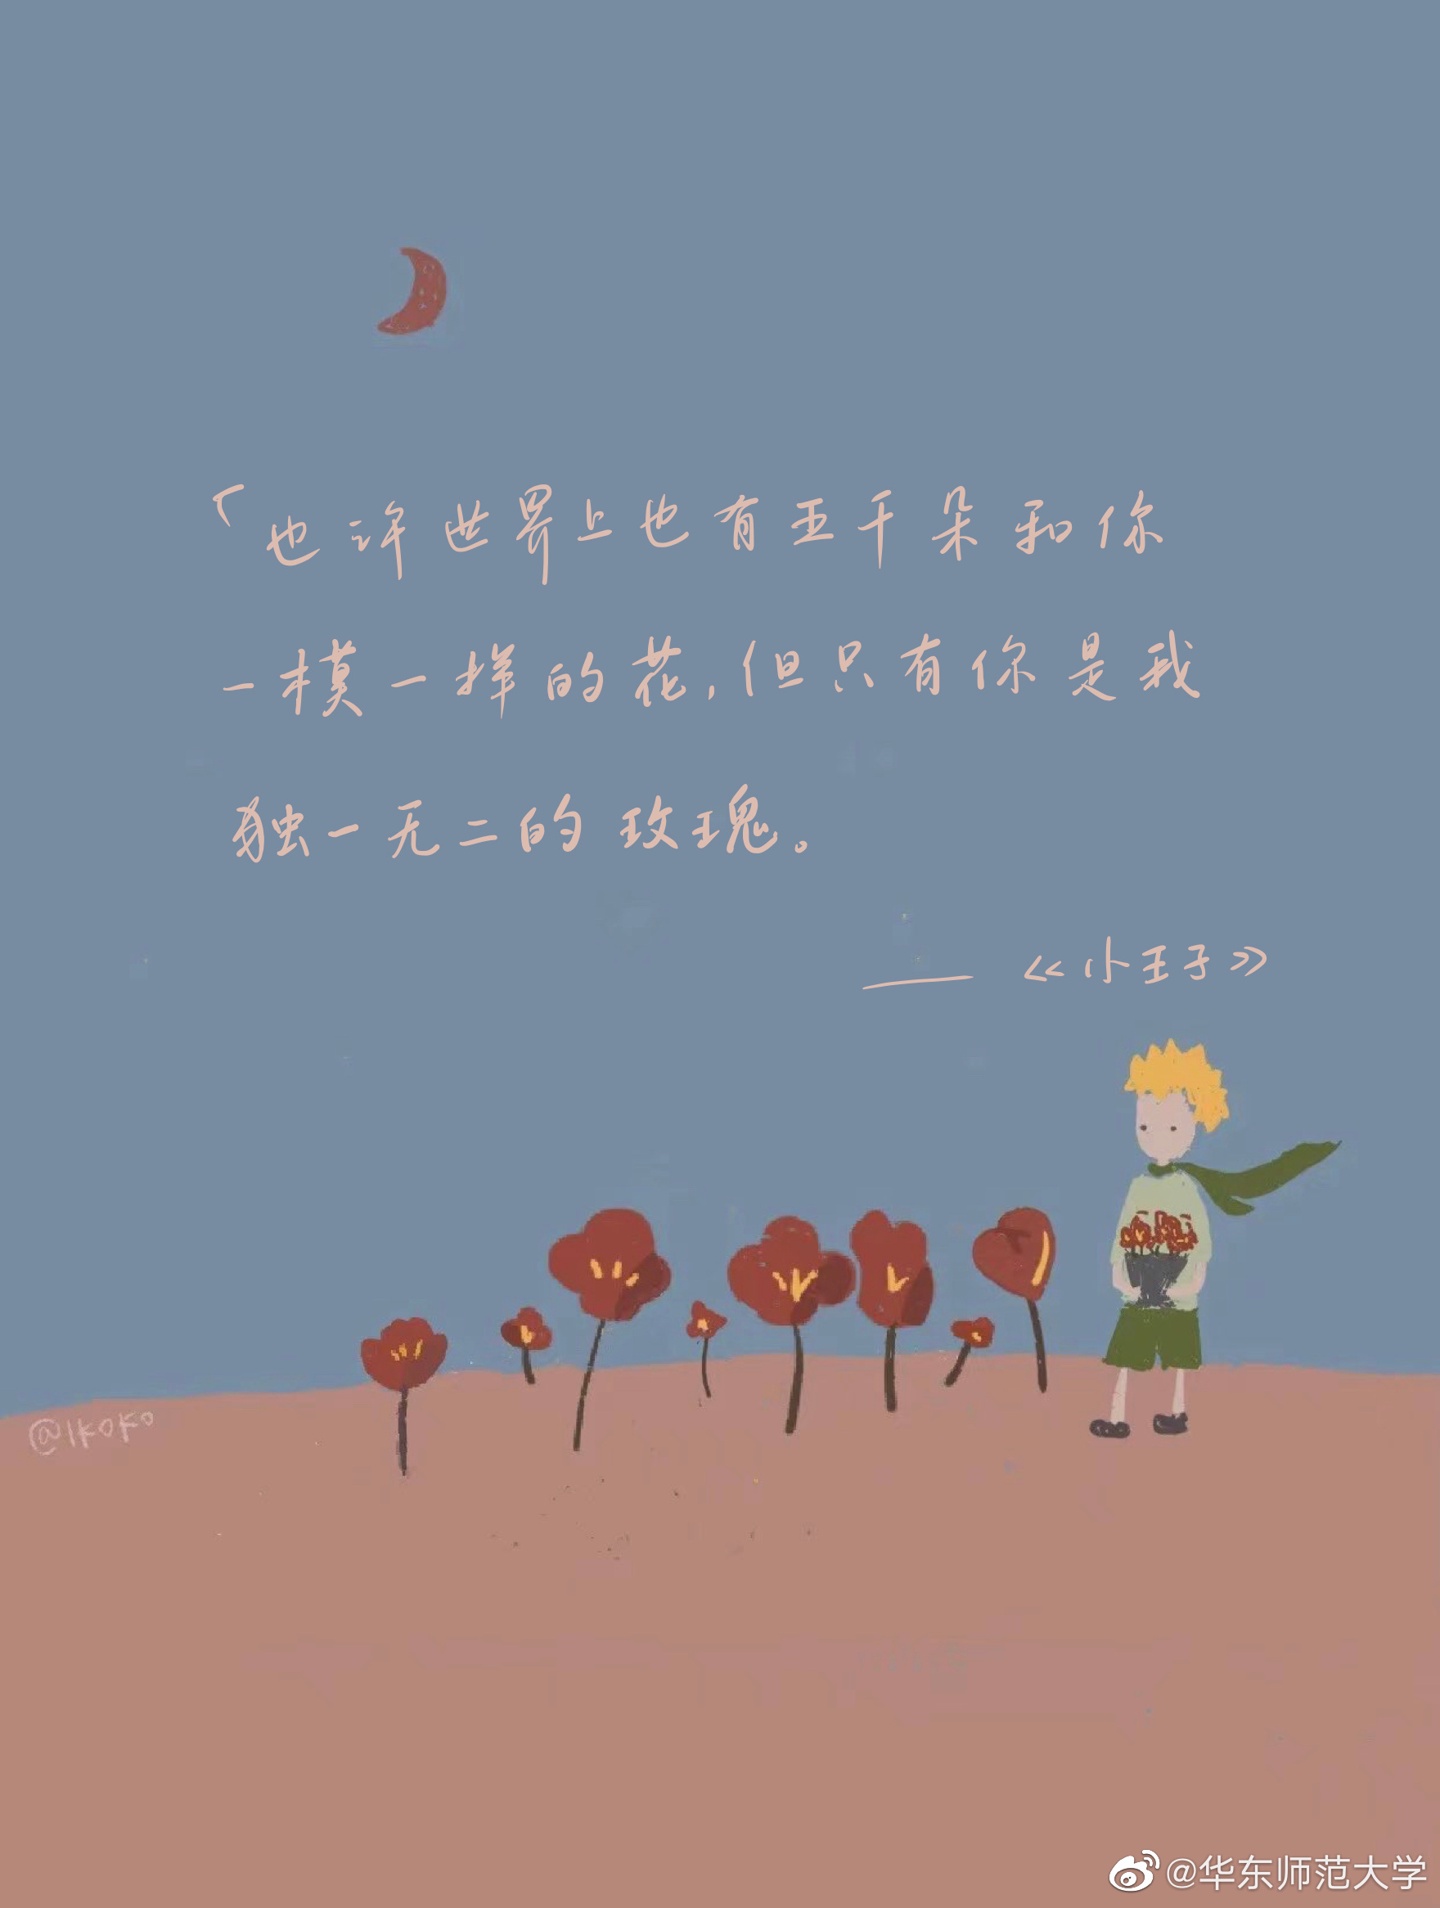 「也许世界上也有五千朵和你
一模一样的花，但只有你是我
独一无二的玫瑰。
——《小王子》
@IKOKO
@华东师范大学